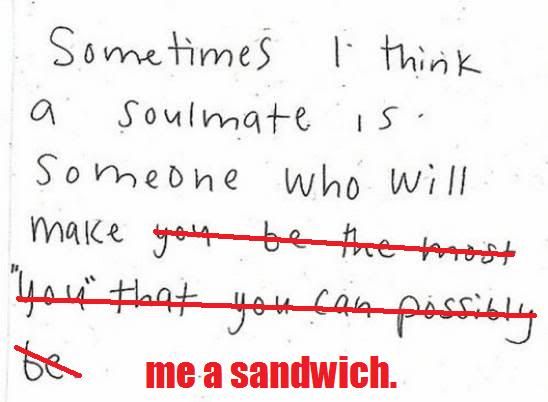 Sometimes I think
a soulmate is
someone who will
make you be the most
"you" that you can possibly
be me a sandwich.